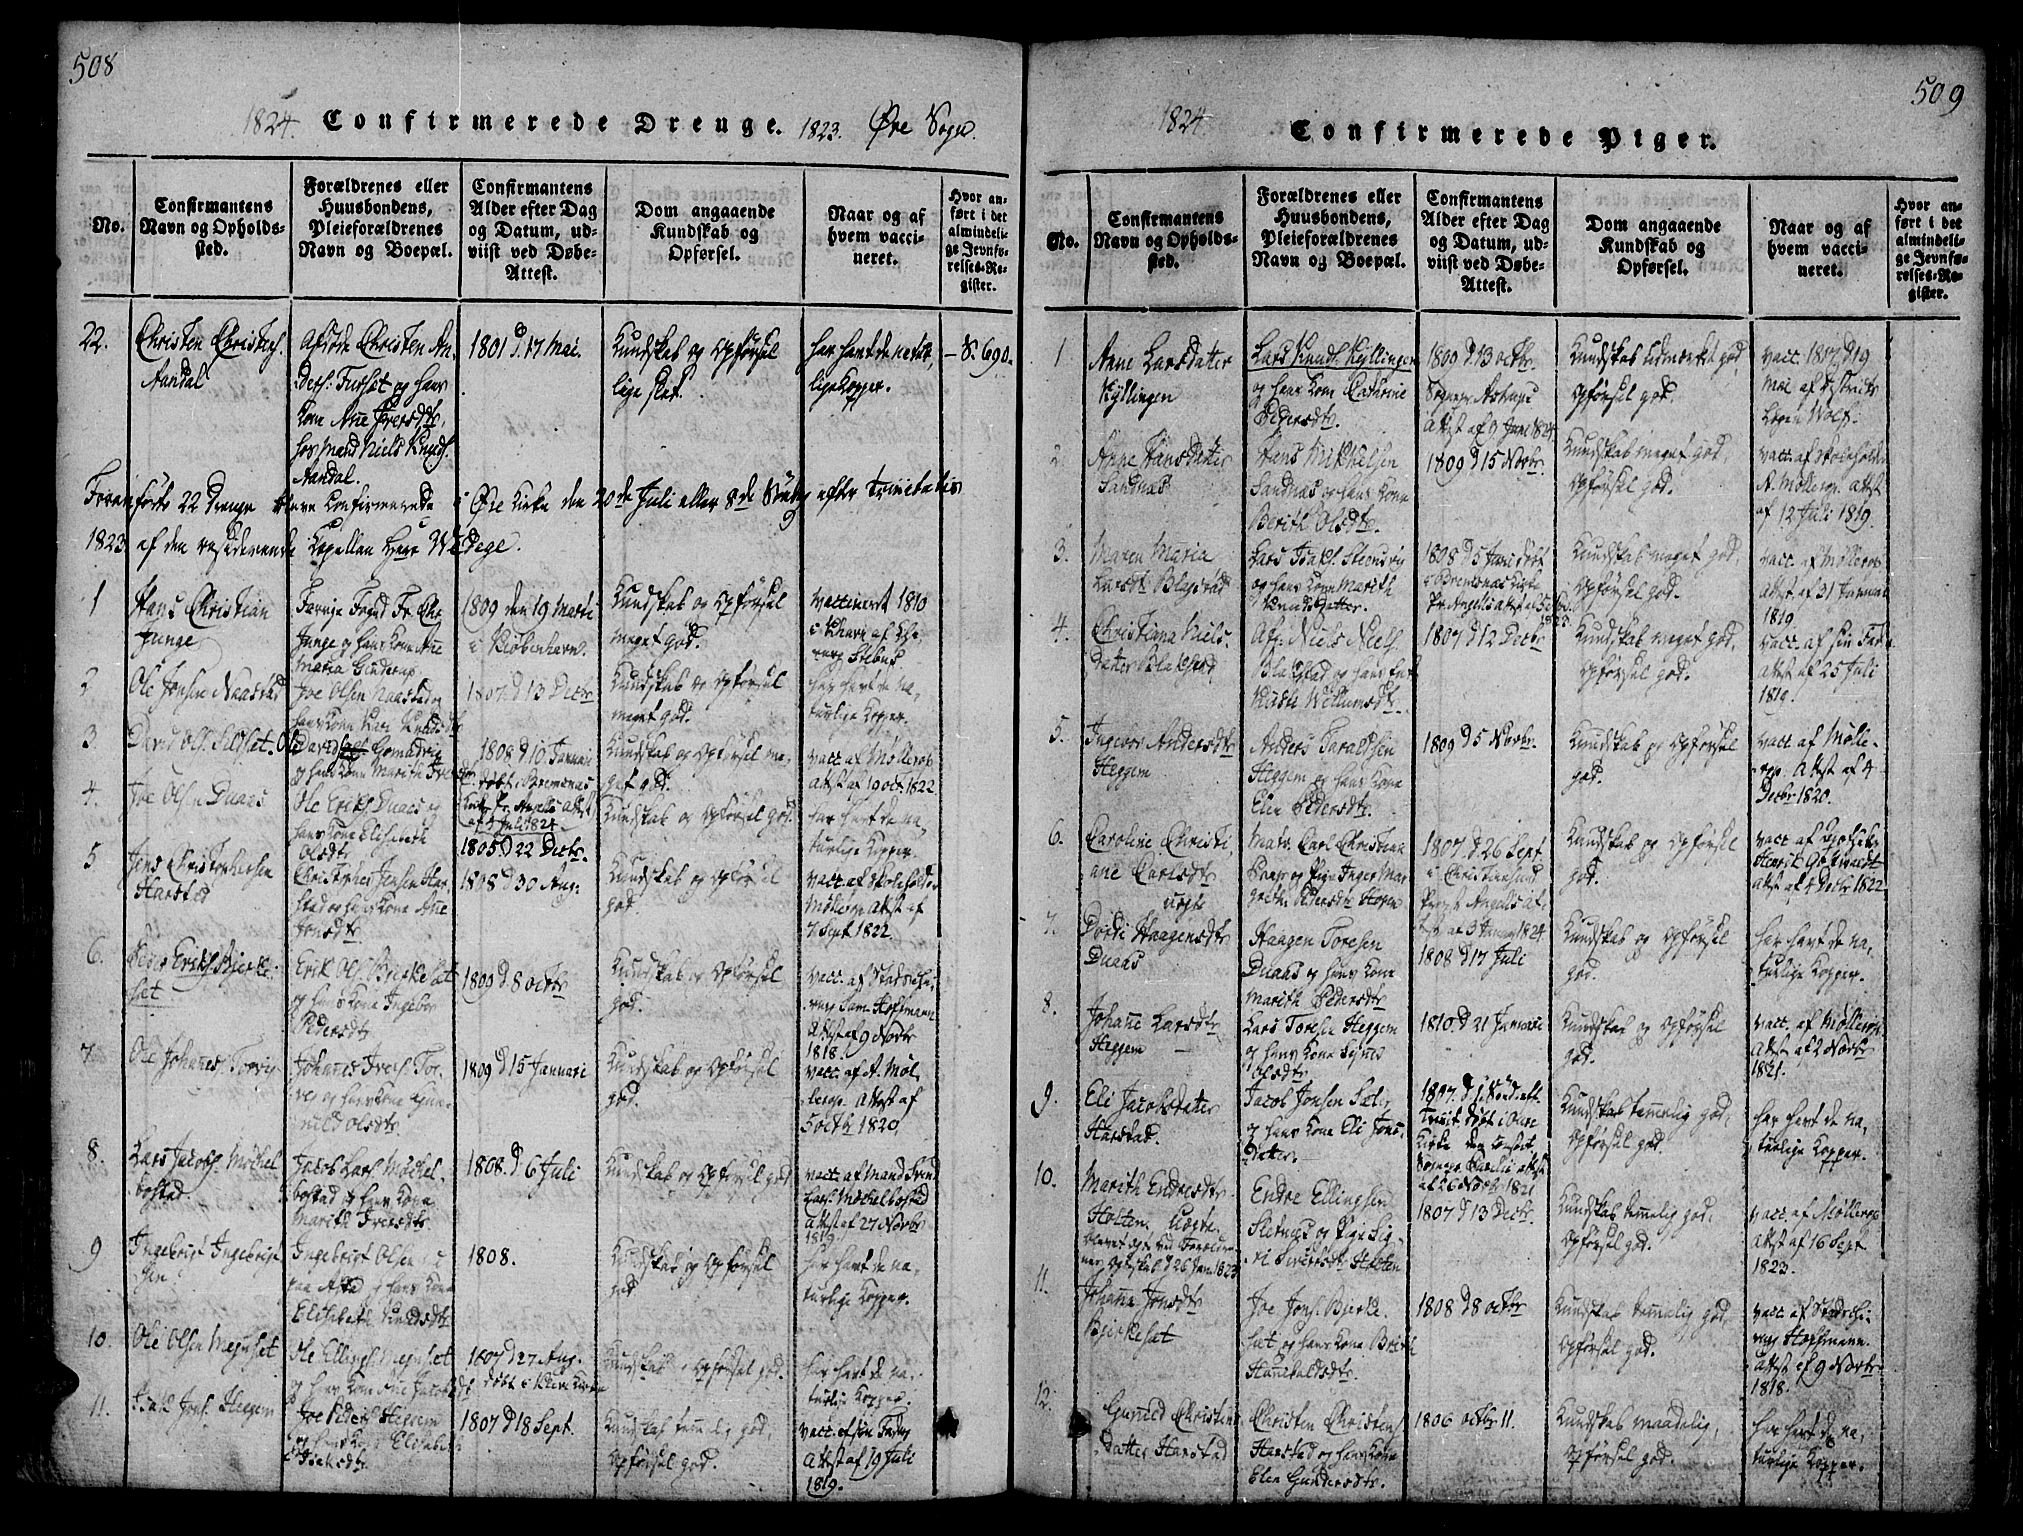 508
1824. Confirmerede Drenge. 1823. Øre Sogn.
No.
Confirmantens
Navn og Opholds-
sted.
Forældrenes eller
Huusbondens,
Pleieforældrenes
Navn og Boepæl.
Confirmantens
Alder efter Dag
og Datum, ud-
viist ved Døbe-
Attest.
Dom angaaende
Kundskab og
Opførsel.
Naar og af
hvem vacci-
neret.
Hvor an-
ført i det
almindeli-
ge Jevnfø-
relses-Re-
gister.
22.
Christen Christens.
Aandal
Afdøde Christen An-
ders: Furset og hans
Kone Anne Iversdtr.
hos Mand Niels Knuds.
Aandal.
1801 d 17 Mai.
Kundskab og Opførsel
lige slet.
har havt de natur-
lige Kopper.
S. 690.
Foranførte 22 Drenge bleve confirmerede i Øre Kirke den 20de Juli eller 8de Søndag efter Trinitatis
1823 af den residerende Capellan Herr
1
Hans Christian
Junge
Junge og hans Kone Anne
Maria
1809 den 19 Martii
i Kiøbenhavn.
Kundskab og Opførsel
meget god.
vaccineret 1810
2
Ole Jonsen Naastad
Joe Olsen Naastad og
hans Kone Kari
1807 d 13 Decbr
Kundskab og Opførsel
meget god.
har havt de na-
turlige Kopper.
3
David Ols. Sildset
og hans Kone Marith
1808 d 10 Januarii
døbt i Bremsnæs
Kirke Pr. Angells Attest
af 4 Juli 1824
Kundskab og Opførsel me-
get god.
vacc. af Møllerop
Attest af 19 oct. 1822
4.
Joe Olsen Duaas
Ole Eriks. Duaas og
hans Kone Elisabeth
Olsdtr
1805 d 22 Decbr.
Kundskab og Opførsel god.
har havt de na-
turlige Kopper.
5
Jens Christophersen
Harstad
Christopher Jensen Har-
stad og hans Kone Anne
Jonsdtr
1808 d 30 Aug:
Kundskab og Opførsel
god.
vacc. af Skoleholder
Møllerop Attest af
7 Sept. 1822.
6.
Peder Eriks. Bjerke-
set
Erik Ols. Bjerkeset
og hans Kone Ingebor
Pedersdtr
1809 d 8 octbr
Kundskab og Opførsel
god.
vacc. af Stadschi-
rurg Sam. Hoffmann
Attest af 9 Novbr
1818.
7.
Ole Johannes. Torvig
Johannes Ivers. Tor-
vig og hans Kone Gun-
nild Olsdtr.
1809 d 15 Januarii
Kundskab og Opførsel
god.
vacc. af A. Møl-
lerop Attest af
5 octbr 1820
8.
Lars Jacobs. Møchel-
bostad.
Jacob Lars. Møchel-
bostad og hans Kone
Marith Iversdtr
1808. d 6 Juli
Kundskab og Opførsel god
vacc. af Mand Svend
Lars. Møchelbostad
Attest af 27 Novbr
1819
9
Ingebrigt Ingebrigt-
sen
Ingebrigt Olsen
paa Astad og hans Kone
Elisabeth Knudsdtr
1808.
Kundskab og Opførsel
god
har havt de na-
turlige Kopper.
10.
Ole Olsen Megaset
Ole Ellings. Megaset
og hans Kone Anne Jacobsdtr
1807 d 27 Aug.
døbt i
Kundskab og Opførsel god.
har havt de na-
turlige Kopper.
11.
Isak Jons. Heggem
Joe Peders. Heggem
og hans Kone Elisabeth
Isaksdtr
1807 d 18 Sept.
Kundskab temmelig god,
Opførsel god.
vacc. af sin Fader
Attest af 19 Juli
1819.
509
1824 Confirmerede Piger.
No.
Confirmantens
Navn og Opholds-
sted.
Forældrenes eller
Huusbondens,
Pleieforældrenes
Navn og Boepæl.
Confirmantens
Alder efter Dag
og Datum, ud-
viist ved Døbe-
Attest.
Dom angaaende
Kundskab og
Opførsel.
Naar og af
hvem vacci-
neret.
Hvor an-
ført i det
almindeli-
ge Jevnfø-
relses-Re-
gister.
1
Anne Larsdatter
Kyllingen
Lars Knuds. Kyllingen
og hans Kone Cathrine
Pedersdtr.
1809 d 13 octbr.
Attest af 9 Juni 1824
Kundskab udmærket god,
Opførsel god.
vacc. 1812 d 19
Mai af Districts
Lægen Wolf.
2.
Anne Hansdatter
Sandnæs
Hans Mikkelsen
Sandnæs og hans Kone
Berith Olsdtr.
1809 d 15 Novbr
Kundskab meget god,
Opførsel god.
vacc. af Skoleholder
A. Møllerop Attest
af 12 Juli 1819.
3.
Maren Maria
Larsdtr Blagstad
og hans Kone Marith
Knudsdatter.
1808 d 5 Junii døbt
i Bremsnæs Kirke
Pr. Angells Attest af
Kundskab meget god,
Opførsel god.
vacc. af Møllerop
Attest af 31 Januarii
1819
4.
Christiana Niels-
datter Blakstad
Afg. Niels Niels.
Blakstad og hans
Wellumsdtr.
1807 d 12 Decbr
Kundskab meget god,
Opførsel god.
vacc. af sin Far
Attest af 25 Juli
1819.
5.
Ingebor Andersdtr
Heggem
Anders Taraldsen
Heggem og hans Kone
Elen Pedersdtr.
1809 d 5 Novbr.
Kundskab og Opførsel
god.
vacc. af Mølle-
rop Attest af 4
Decbr 1820.
6.
Caroline Christi-
ane Carlsdtr
uægte
Matr. Carl Christian
og Pige Inger Mar-
grethe Pedersdtr
1807 d 26 Sept
i Christiansund
Provst Angells At-
test af 3 1824
Kundskab og Opførsel
god.
vacc. af
Attest af 4 Decbr 1822
7.
Dordi Haagensdtr
Duaas
Haagen Toresen
Duaas og hans Kone
Marith Pedersdtr
1808 d 17 Juli
Kundskab og Opførsel
god.
har havt de na-
turlige Kopper.
8.
Johanne Larsdtr
Heggem
Lars Toresen Heggem
og hans Kone
Olsdtr
1810. d 21 Januarii
Kundskab og Opførsel
god.
vacc. af Møllerop
Attest af 2 Novbr
1821.
9.
Eli Jacobsdatter
Harstad.
Jacob Jonsen Sæt
og hans Kone Eli Jons-
datter.
1807.
af 26 Novbr 1821
Kundskab temmelig god,
Opførsel god.
har havt de na-
turlige Kopper.
10.
Marith Endresdtr
Holten. uægte.
Endre Ellingsen
Sletnæs og Pige Sig-
ri Sivertsdtr Holten
1807 d 13 Decbr.
Kundskab temmelig god,
Opførsel god.
vacc. af Møllerop
Attest af 16 Sept
1823.
11.
Johanne Jonsdtr
Bjerkeset
Joe Jons. Bjerke-
set og hans Kone Berith
Hanibalsdtr.
1808 d 8 octbr
Kundskab temmelig god,
Opførsel god.
vacc. af Stadschi-
rurg Hoffmann.
Attest af 9 Novbr
1818.
12.
Guneld Christens-
datter Harstad
Christen Christens.
Harstad og hans Kone
Elen Gundersdtr.
1806 octbr 11.
Kundskab maadelig,
Opførsel god.
har havt de na-
turlige Kopper.